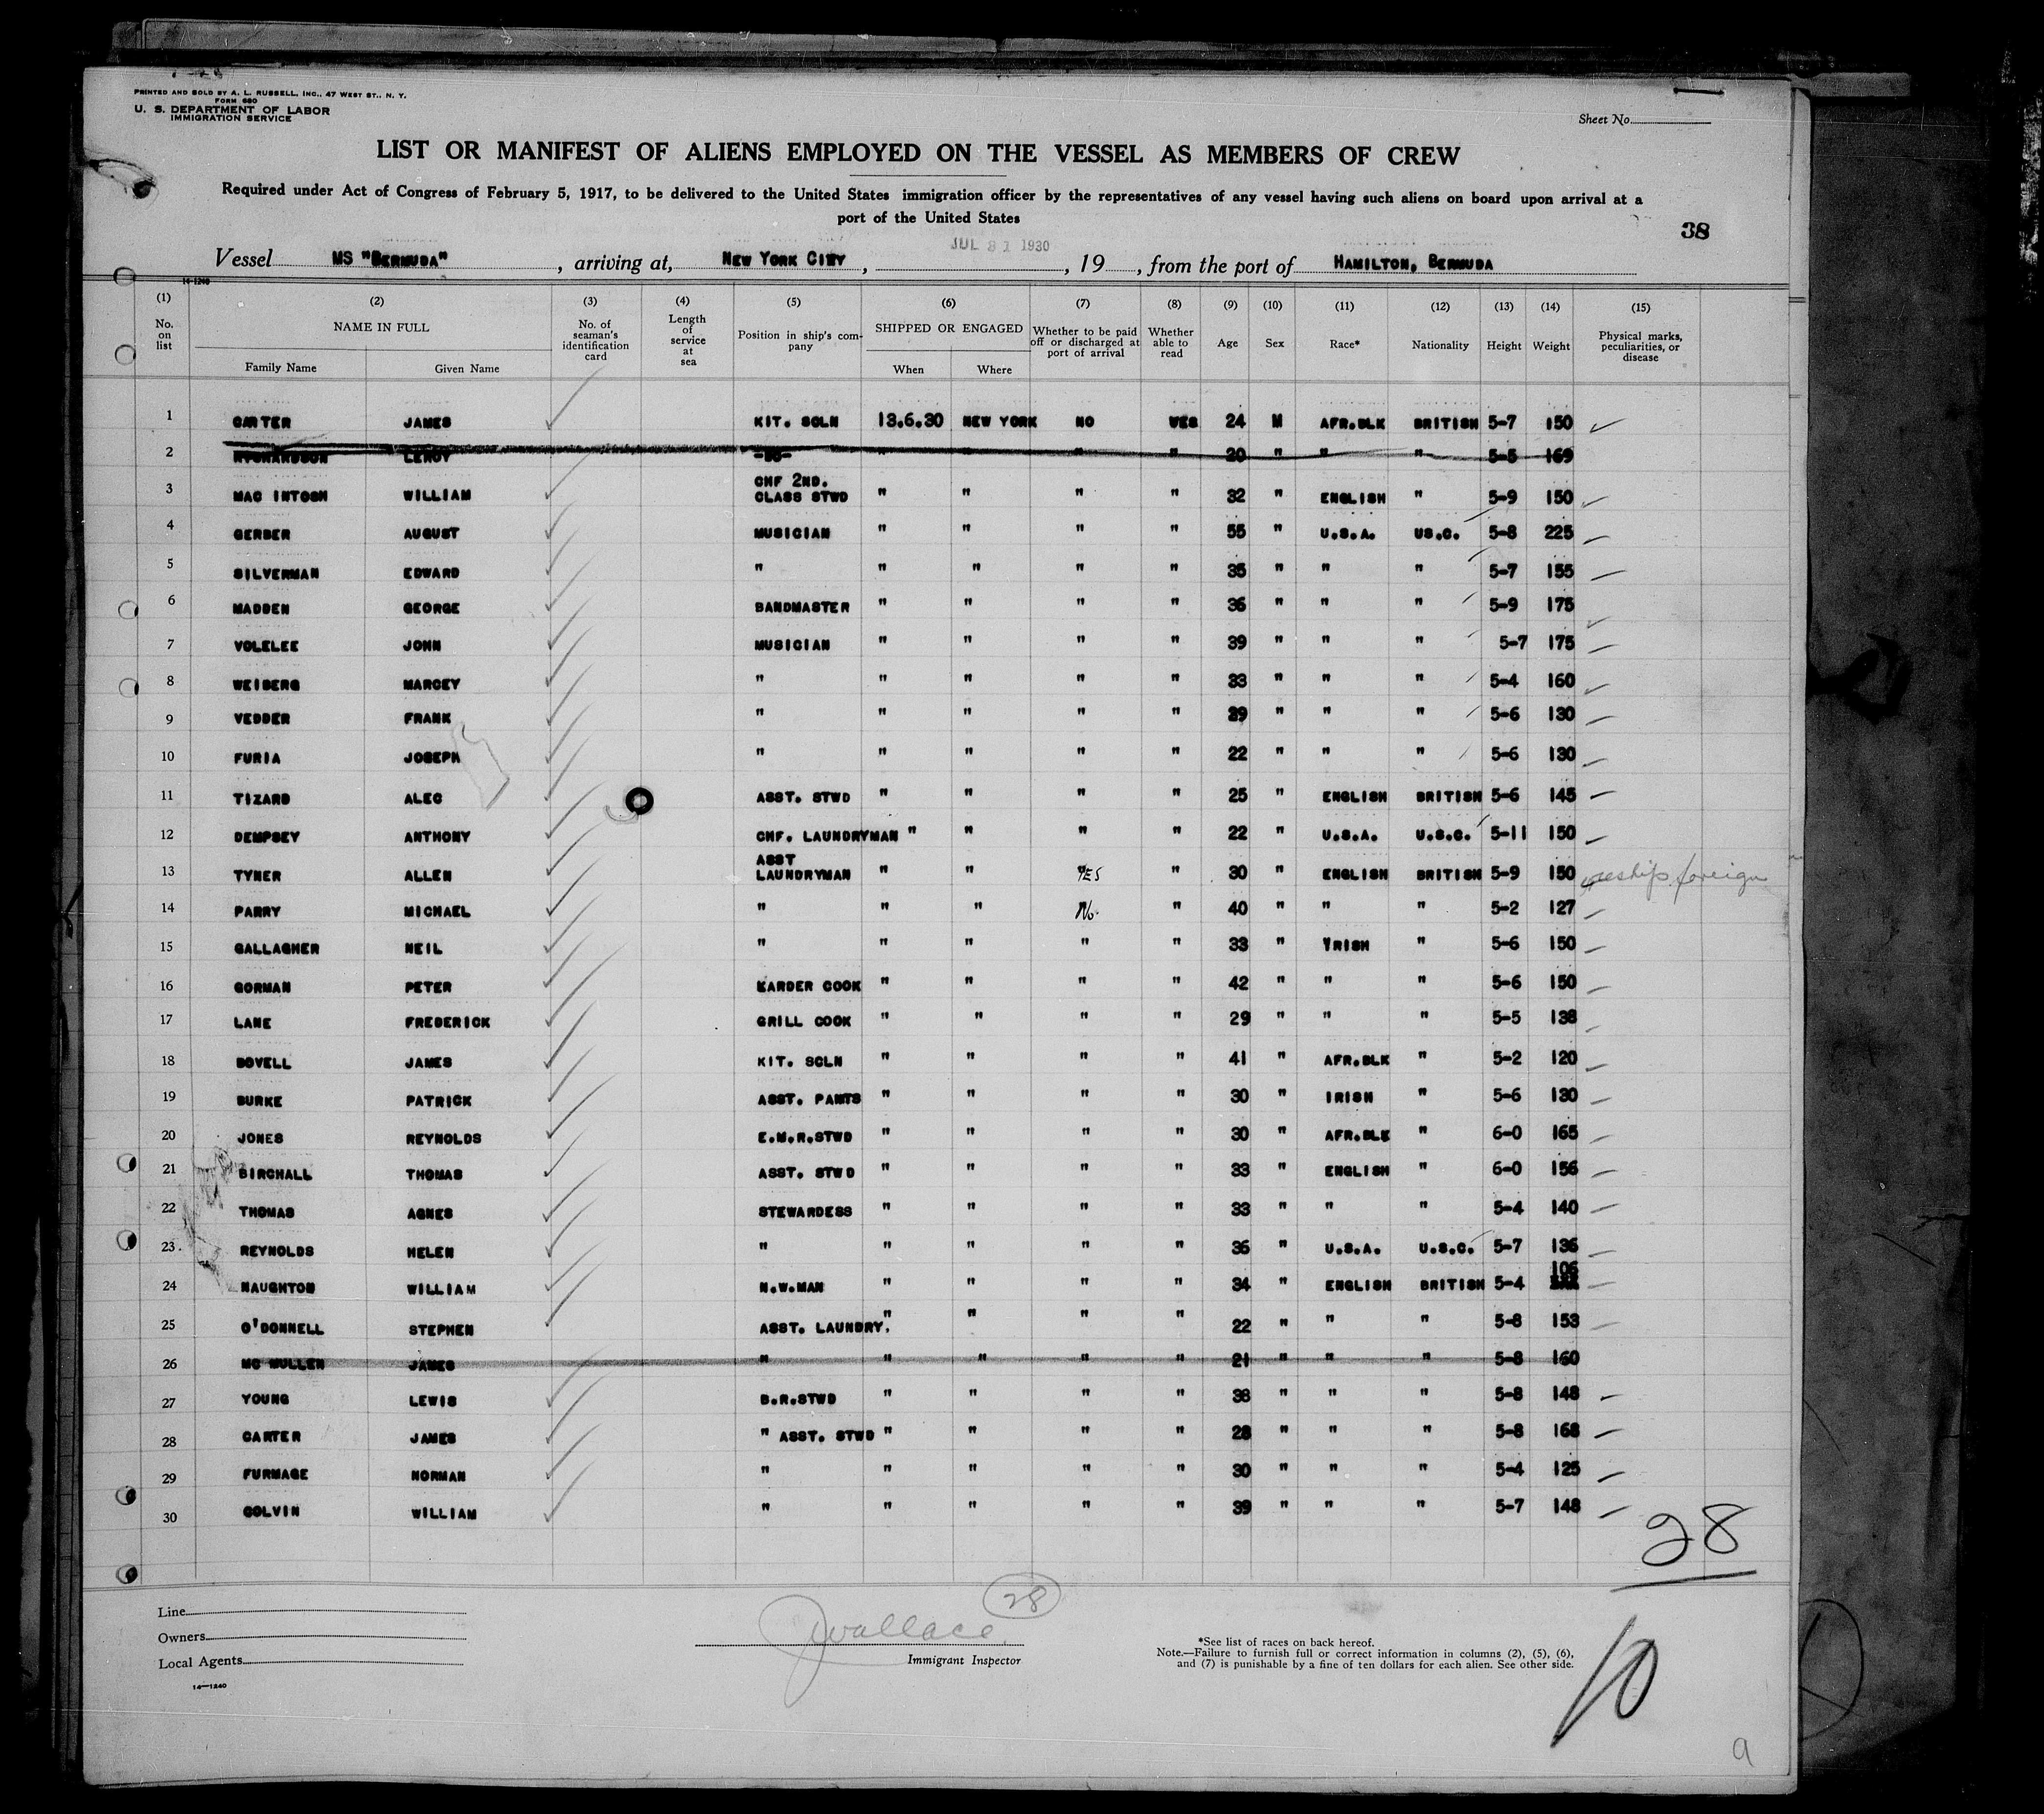 PRINTED AND SOLD BY A. L. RUSSELL, INC., 47 WEST ST., N. Y.
FORM 680
U. S. DEPARTMENT OF LABOR
IMMIGRATION SERVICE
Sheet No.
LIST OR MANIFEST OF ALIENS EMPLOYED ON THE VESSEL AS MEMBERS OF CREW
Required under Act of Congress of February 5, 1917, to be delivered to the United States immigration officer by the representatives of any vessel having such aliens on board upon arrival at a
port of the United States
38
JUL 31 1930
Vessel MS "BERMUDA", arriving at, NEW YORK CITY, , 19 , from the port of HAMILTON, BERMUDA
14-1240
(1) (2) (3) (4) (5) (6) (7) (8) (9) (10) (11) (12) (13) (14) (15)
No. on list NAME IN FULL Family Name Given Name No. of seaman's identification card Length of service at sea Position in ship's company SHIPPED OR ENGAGED When Where Whether to be paid off or discharged at port of arrival Whether able to read Age Sex Race* Nationality Height Weight Physical marks, peculiarities, or disease
1 CARTER JAMES KIT. SCLN 13.6.30 NEW YORK NO YES 24 M AFR.BLK BRITISH 5-7 150
2 RICHARDSON LEROY -DO- " " " " 20 " " " 5-5 169
3 MAC INTOSH WILLIAM CHF 2ND. CLASS STWD " " " " 32 " ENGLISH " 5-9 150
4 GERBER AUGUST MUSICIAN " " " " 55 " U.S.A. US.C. 5-8 225
5 SILVERMAN EDWARD " " " " " 35 " " " 5-7 155
6 MADDEN GEORGE BANDMASTER " " " " 36 " " " 5-9 175
7 VOLELEE JOHN MUSICIAN " " " " 39 " " " 5-7 175
8 WEIBERG MARCEY " " " " " 33 " " " 5-4 160
9 VEDDER FRANK " " " " " 29 " " " 5-6 130
10 FURIA JOSEPH " " " " " 22 " " " 5-6 130
11 TIZARD ALEC ASST. STWD " " " " 25 " ENGLISH BRITISH 5-6 145
12 DEMPSEY ANTHONY CHF. LAUNDRYMAN " " " " 22 " U.S.A. U.S.C. 5-11 150
13 TYNER ALLEN ASST LAUNDRYMAN " " YES " 30 " ENGLISH BRITISH 5-9 150 reship foreign
14 PARRY MICHAEL " " " No. " 40 " " " 5-2 127
15 GALLAGHER NEIL " " " " " 33 " IRISH " 5-6 150
16 GORMAN PETER LARDER COOK " " " " 42 " " " 5-6 150
17 LANE FREDERICK GRILL COOK " " " " 29 " " " 5-5 138
18 BOVELL JAMES KIT. SCLN " " " " 41 " AFR.BLK " 5-2 120
19 BURKE PATRICK ASST. PANTS " " " " 30 " IRISH " 5-6 130
20 JONES REYNOLDS E.M.R.STWD " " " " 30 " AFR.BLK " 6-0 165
21 BIRCHALL THOMAS ASST. STWD " " " " 33 " ENGLISH " 6-0 156
22 THOMAS AGNES STEWARDESS " " " " 33 " " " 5-4 140
23. REYNOLDS HELEN " " " " " 36 " U.S.A. U.S.C. 5-7 136
24 NAUGHTON WILLIAM N.W.MAN " " " " 34 " ENGLISH BRITISH 5-4 106
25 O'DONNELL STEPHEN ASST. LAUNDRY. " " " " 22 " " " 5-8 153
26 MC MULLEN JAMES " " " " " 21 " " " 5-8 160
27 YOUNG LEWIS B.R.STWD " " " " 38 " " " 5-8 148
28 CARTER JAMES " ASST. STWD " " " " 28 " " " 5-8 168
29 FURMAGE NORMAN " " " " " 30 " " " 5-4 125
30 COLVIN WILLIAM " " " " " 39 " " " 5-7 148
28
28
Line
Owners
Local Agents
14—1240
JWallace
Immigrant Inspector
*See list of races on back hereof.
Note.—Failure to furnish full or correct information in columns (2), (5), (6),
and (7) is punishable by a fine of ten dollars for each alien. See other side.
10
a